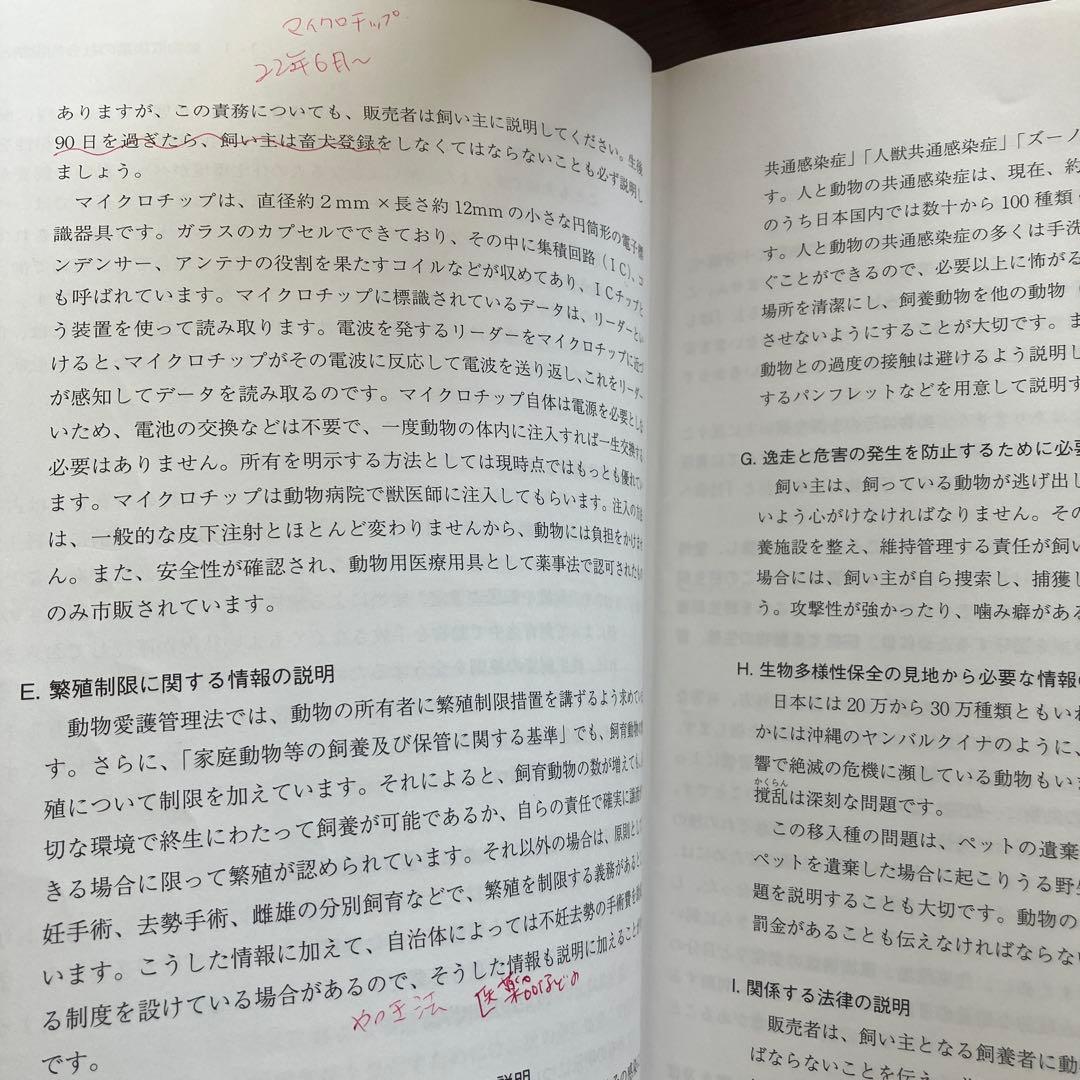 マイクロチップ
22年6月～
ありますが、この責務についても、販売者は飼い主に説明してください。生後
90日を過ぎたら、飼い主は畜犬登録をしなくてはならないことも必ず説明し
ましょう。
マイクロチップは、直径約2mm×長さ約12mmの小さな円筒形の電子標
識器具です。ガラスのカプセルでできており、その中に集積回路（IC）、コ
ンデンサー、アンテナの役割を果たすコイルなどが収めてあり、ICチップと
も呼ばれています。マイクロチップに標識されているデータは、リーダーとい
う装置を使って読み取ります。電波を発するリーダーをマイクロチップに近づ
けると、マイクロチップがその電波に反応して電波を送り返し、これをリーダー
が感知してデータを読み取るのです。マイクロチップ自体は電源を必要としな
いため、電池の交換などは不要で、一度動物の体内に注入すれば一生交換する
必要はありません。所有を明示する方法としては現時点ではもっとも優れてい
ます。マイクロチップは動物病院で獣医師に注入してもらいます。注入の方法
は、一般的な皮下注射とほとんど変わりませんから、動物には負担をかけませ
ん。また、安全性が確認され、動物用医療用具として薬事法で認可されたもの
のみ市販されています。
E. 繁殖制限に関する情報の説明
動物愛護管理法では、動物の所有者に繁殖制限措置を講ずるよう求めていま
す。さらに、「家庭動物等の飼養及び保管に関する基準」でも、飼育動物の繁
殖について制限を加えています。それによると、飼育動物の数が増えても、適
切な環境で終生にわたって飼養が可能であるか、自らの責任で確実に譲渡で
きる場合に限って繁殖が認められています。それ以外の場合は、原則として
妊手術、去勢手術、雌雄の分別飼育などで、繁殖を制限する義務があると
います。こうした情報に加えて、自治体によっては不妊去勢の手術費を
る制度を設けている場合があるので、そうした情報も説明に加えることが
です。
医薬品などの
共通感染症」「人獣共通感染症」「ズーノ
す。人と動物の共通感染症は、現在、約
のうち日本国内では数十から100種類
す。人と動物の共通感染症の多くは手洗
ぐことができるので、必要以上に怖がる
場所を清潔にし、飼養動物を他の動物
させないようにすることが大切です。ま
動物との過度の接触は避けるよう説明し
するパンフレットなどを用意して説明す
G. 逸走と危害の発生を防止するために必要
飼い主は、飼っている動物が逃げ出し
いよう心がけなければなりません。その
養施設を整え、維持管理する責任が飼い
場合には、飼い主が自ら捜索し、捕獲し
う。攻撃性が強かったり、噛み癖がある
H. 生物多様性保全の見地から必要な情報の
日本には20万から30万種類ともいわ
かには沖縄のヤンバルクイナのように、
響で絶滅の危機に瀕している動物もいま
かくらん
撹乱は深刻な問題です。
この移入種の問題は、ペットの遺棄
ペットを遺棄した場合に起こりうる野生
題を説明することも大切です。動物の
罰金があることも伝えなければならない
I. 関係する法律の説明
販売者は、飼い主となる飼養者に動
ばならないことを伝え